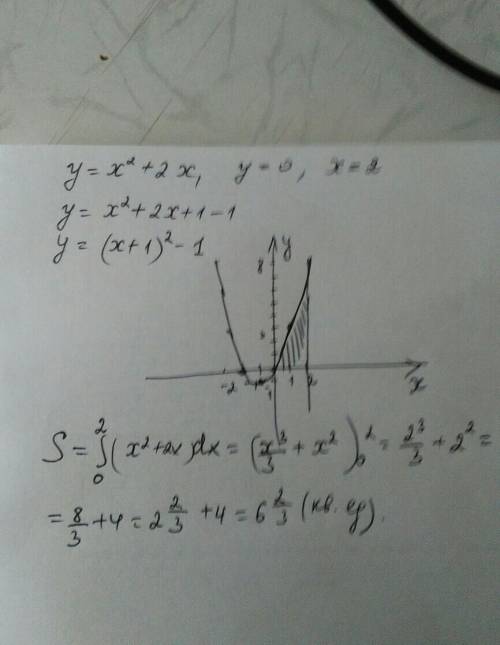 y = x² + 2x, y = 0, x = 2
y = x² + 2x + 1 - 1
y = (x+1)² - 1
y
8
-2 1 2
-1
x
S = ∫₀² (x² + 2x)dx = (x³/3 + x²)₀² = 2³/3 + 2² =
= 8/3 + 4 = 2 2/3 + 4 = 6 2/3 (кв. ед).